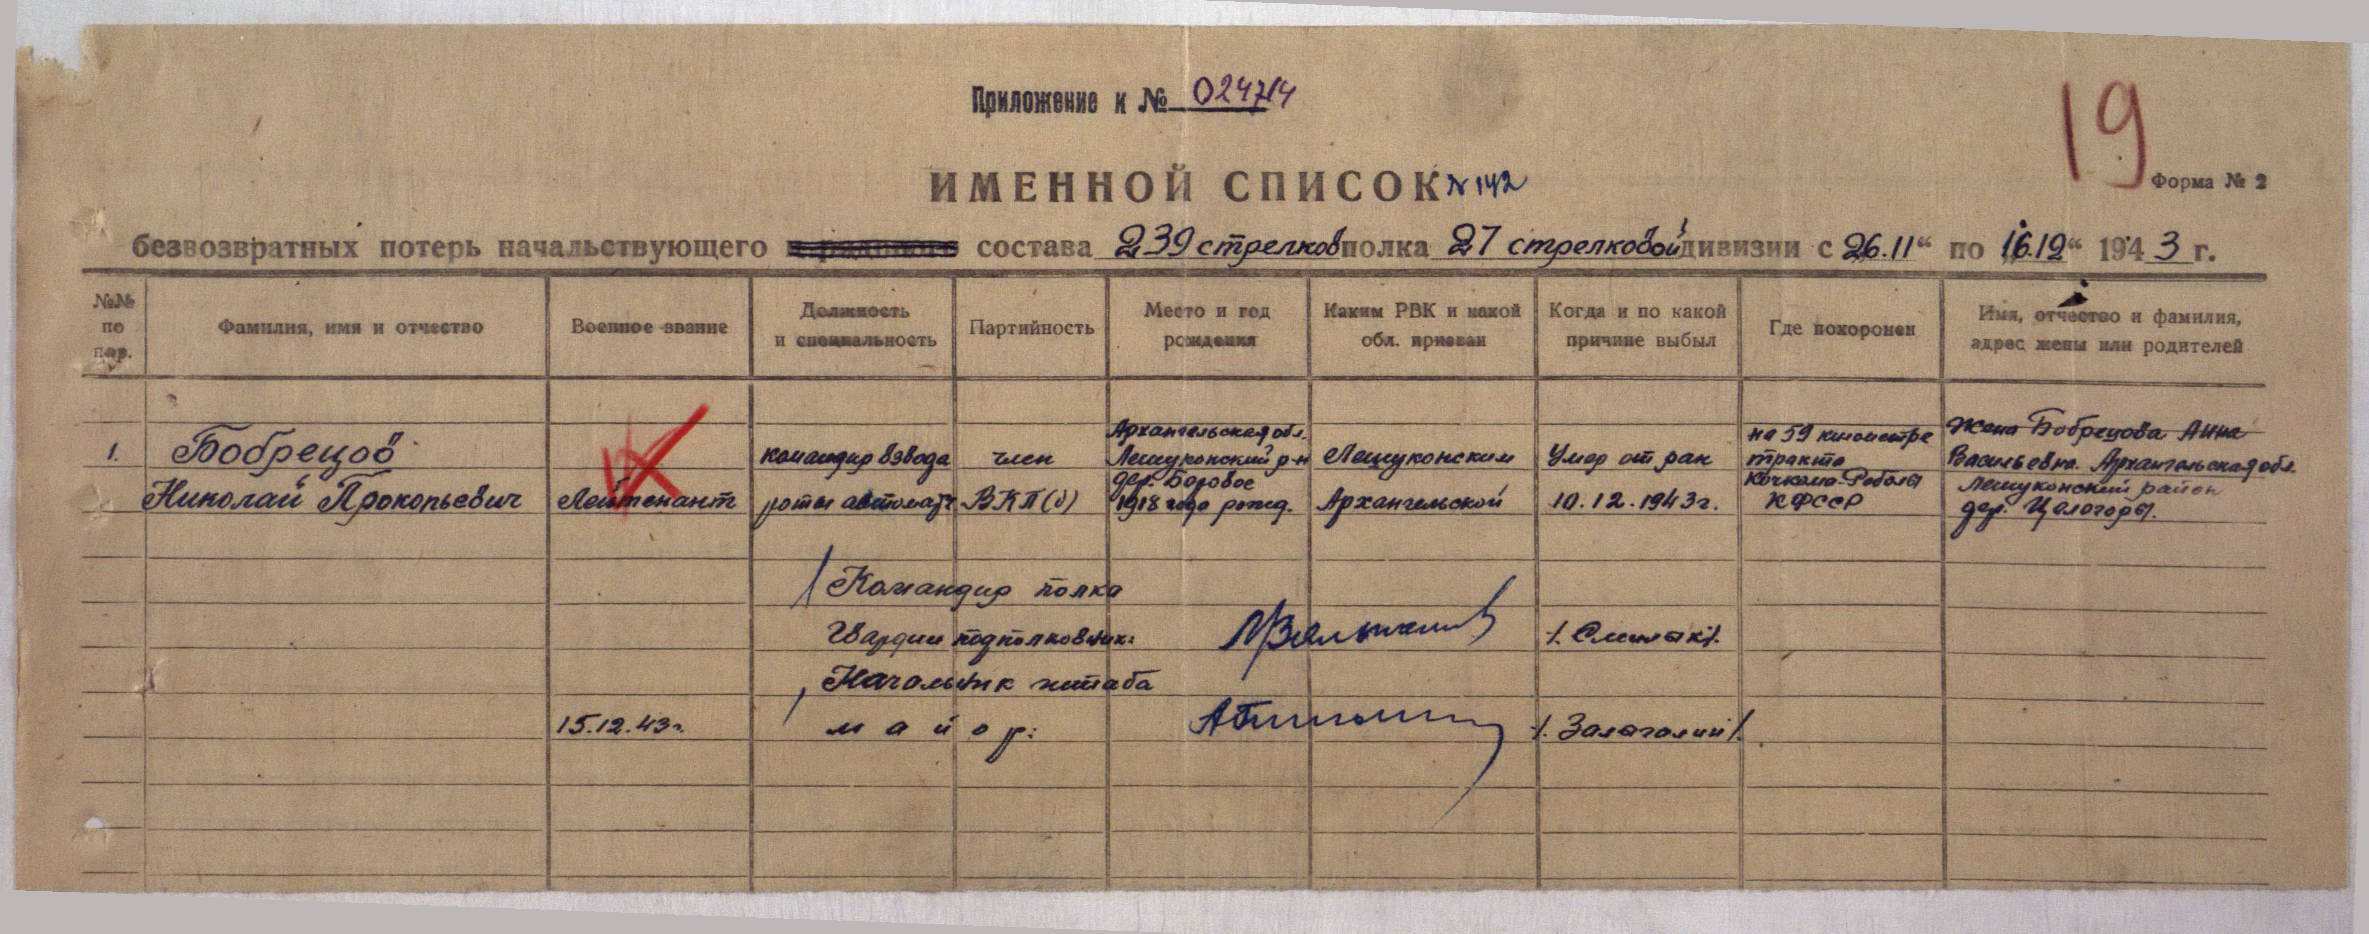 Приложение к № 024714
19
ИМЕННОЙ СПИСОК № 142
Форма № 2
безвозвратных потерь начальствующего и рядового состава 239 стрелков полка 27 стрелковой дивизии с 26.11“ по 16.12“ 1943 г.
№№ по пор.
Фамилия, имя и отчество
Военное звание
Должность и специальность
Партийность
Место и год рождения
Каким РВК и какой обл. призван
Когда и по какой причине выбыл
Где похоронен
Имя, отчество и фамилия, адрес жены или родителей
1.
Бобрецов
Николай Прокопьевич
Лейтенант
командир взвода
роты автомат
член
ВКП(б)
Архангельская обл.
Лешуконский р-н
дер. Боровое
1918 года рожд.
Лешуконским
Архангельской
Умер от ран
10.12.1943г.
на 59 километре
тракта
Кочкома-Реболы
КФССР
Жена Бобрецова Анна
Васильевна. Архангельская обл.
Лешуконский район
дер. Целегоры.
Командир полка
Гвардии подполковник:
/. Смилык/.
Начальник штаба
15.12.43г.
майор: